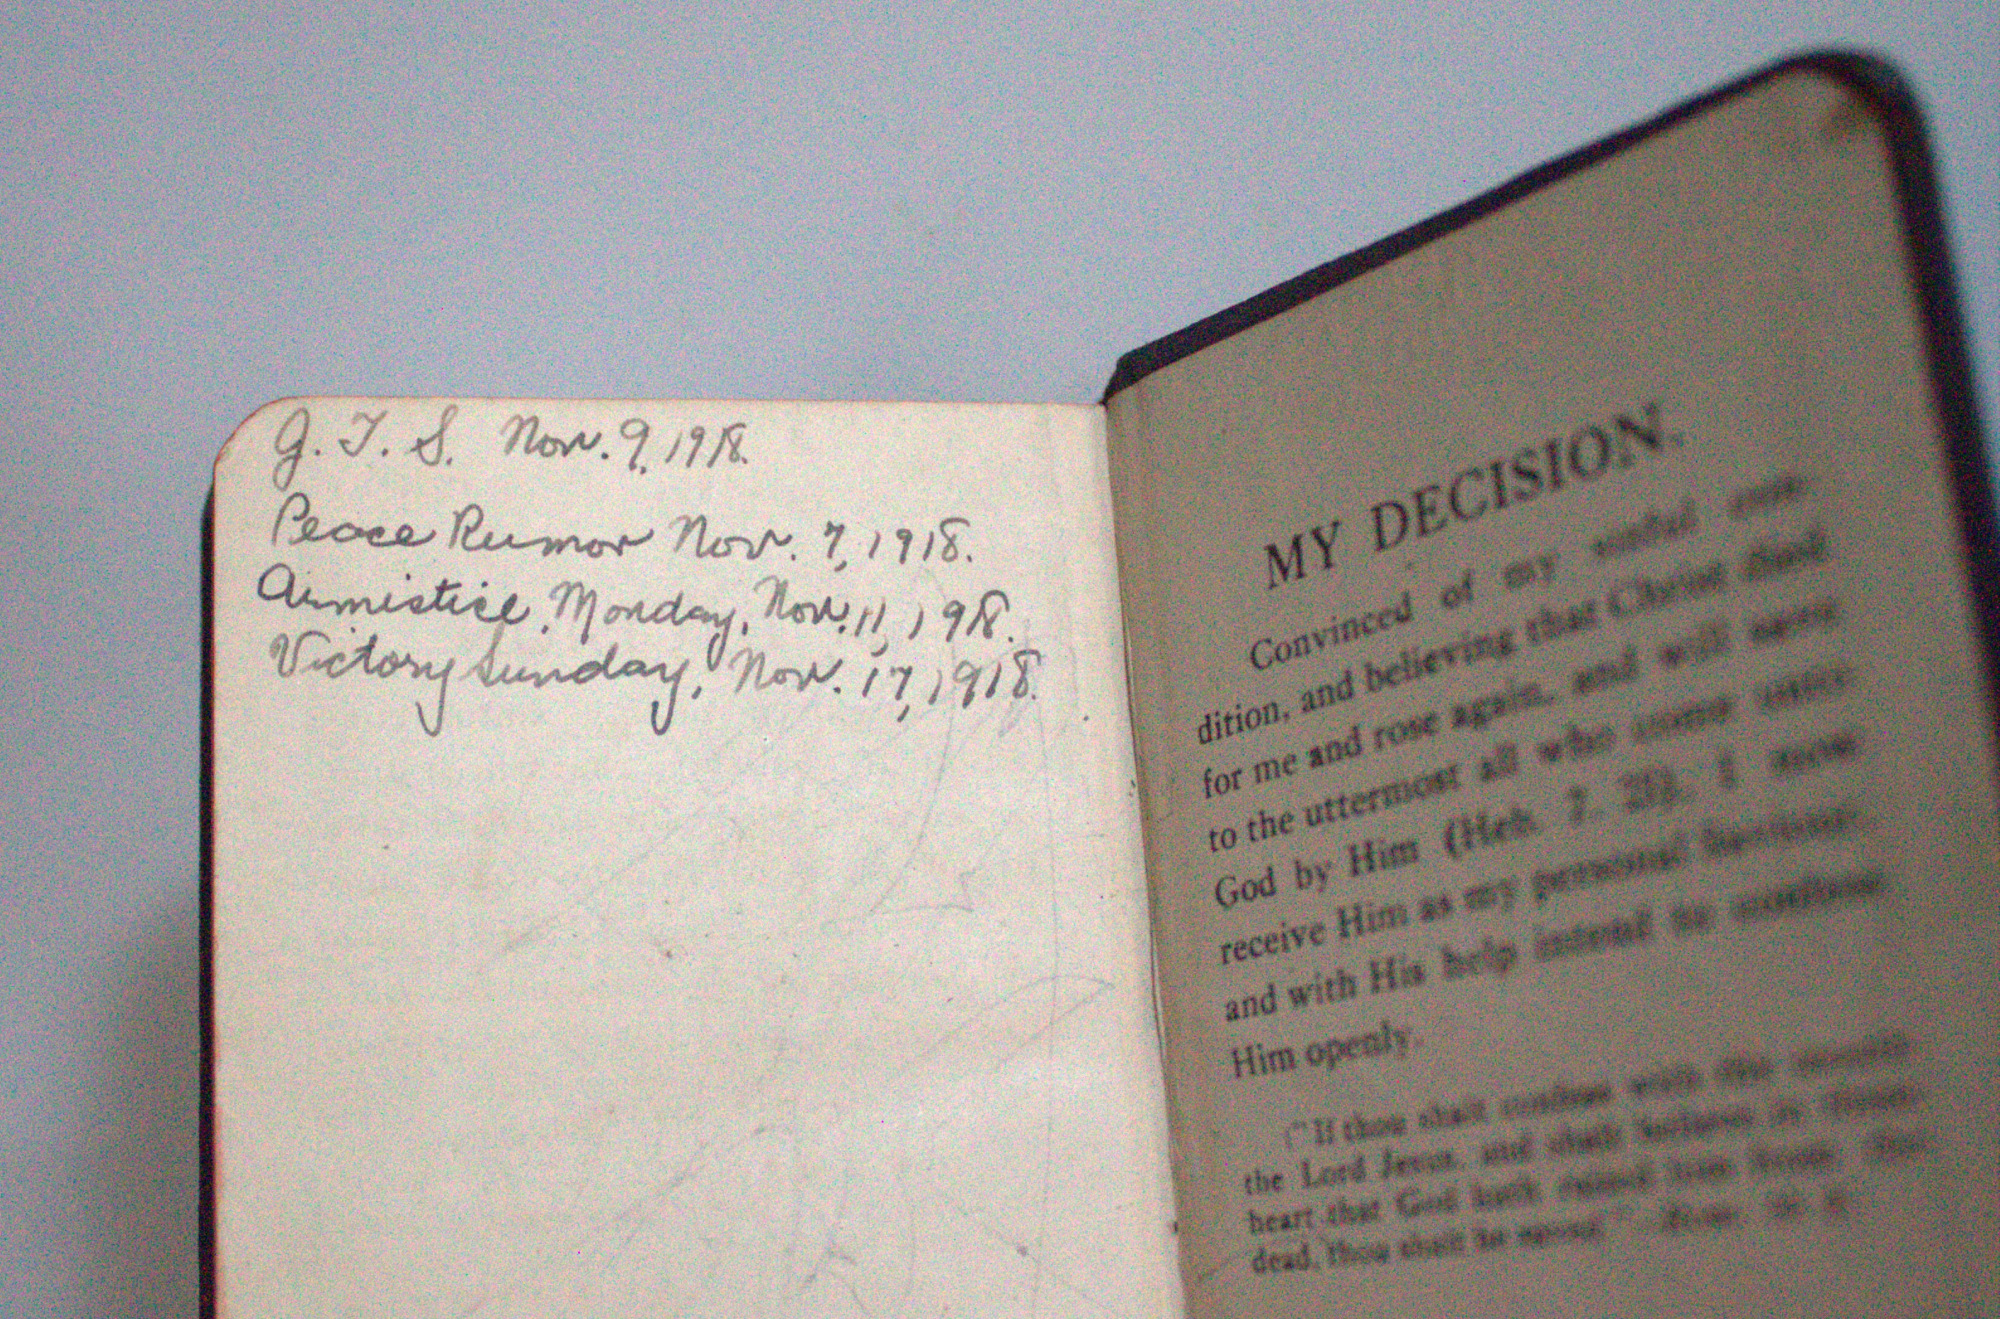 G. T. S. Nov. 9, 1918.
Peace Rumor Nov. 7, 1918.
Armistice, Monday, Nov. 11, 1918.
Victory Sunday, Nov. 17, 1918.
MY DECISION.
Convinced of my sinful con-
dition, and believing that Christ died
for me and rose again, and will save
to the uttermost all who come unto
God by Him (Heb. 7. 25), I now
receive Him as my personal Saviour,
and with His help intend to confess
Him openly.
("If thou shalt confess with thy mouth
the Lord Jesus, and shalt believe in thine
heart that God hath raised him from the
dead, thou shalt be saved." Rom. 10. 9